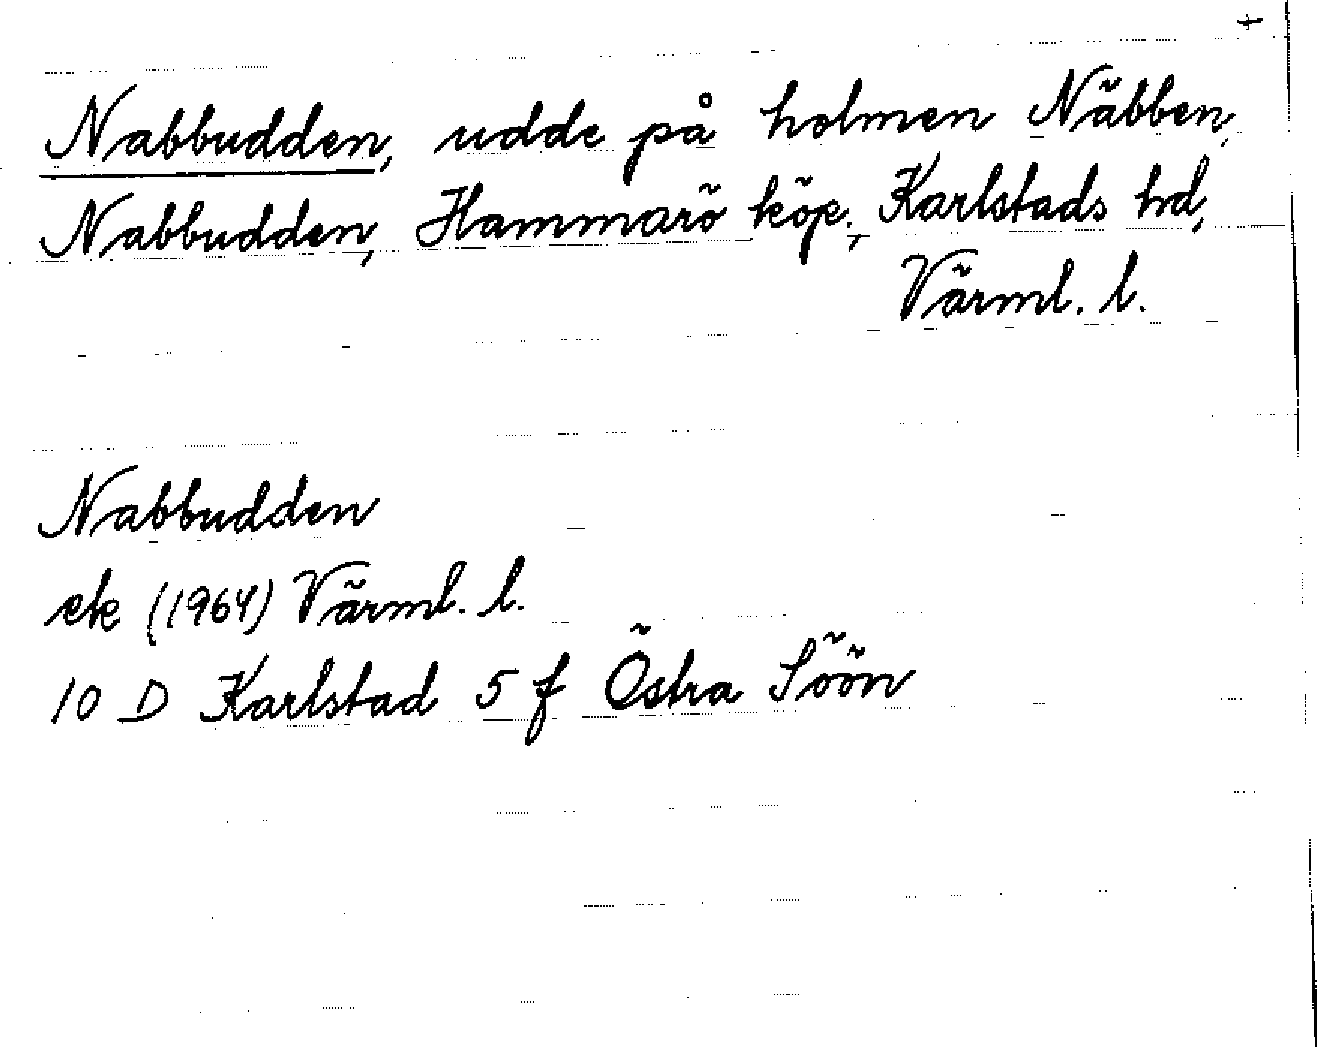 +
Nabbudden, udde på holmen Näbben,
Nabbudden, Hammarö köp., Karlstads hd,
Värml. l.
Nabbudden
ek (1964) Värml. l.
10 D Karlstad 5 f Östra Söön